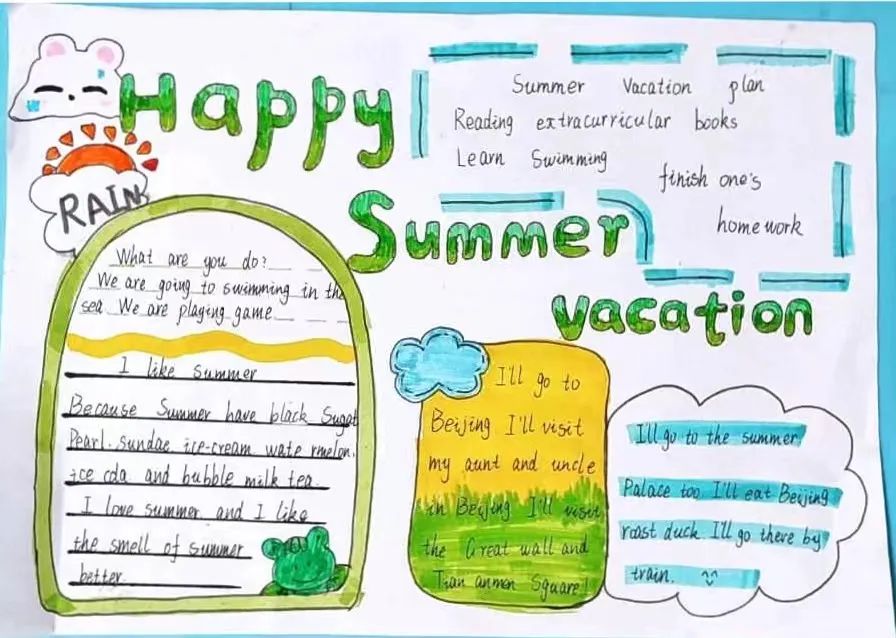 Happy
Summer
vacation
Summer Vacation plan
Reading extracurricular books
Learn Swimming
finish one's
homework
RAIN
What are you do?
We are going to swimming in the
sea. We are playing game
I like summer
Because Summer have black Sugar
Pearl. Sundae ice-cream wate rmelon.
ice cda and bubble milk tea.
I love summer and I like
the smell of summer
better
I'll go to
Beijing I'll visit
my aunt and uncle
in Beijing I'll visit
the Great wall and
Tian anmen Square!
I'll go to the summer
Palace too I'll eat Beijing
roast duck I'll go there by
train.